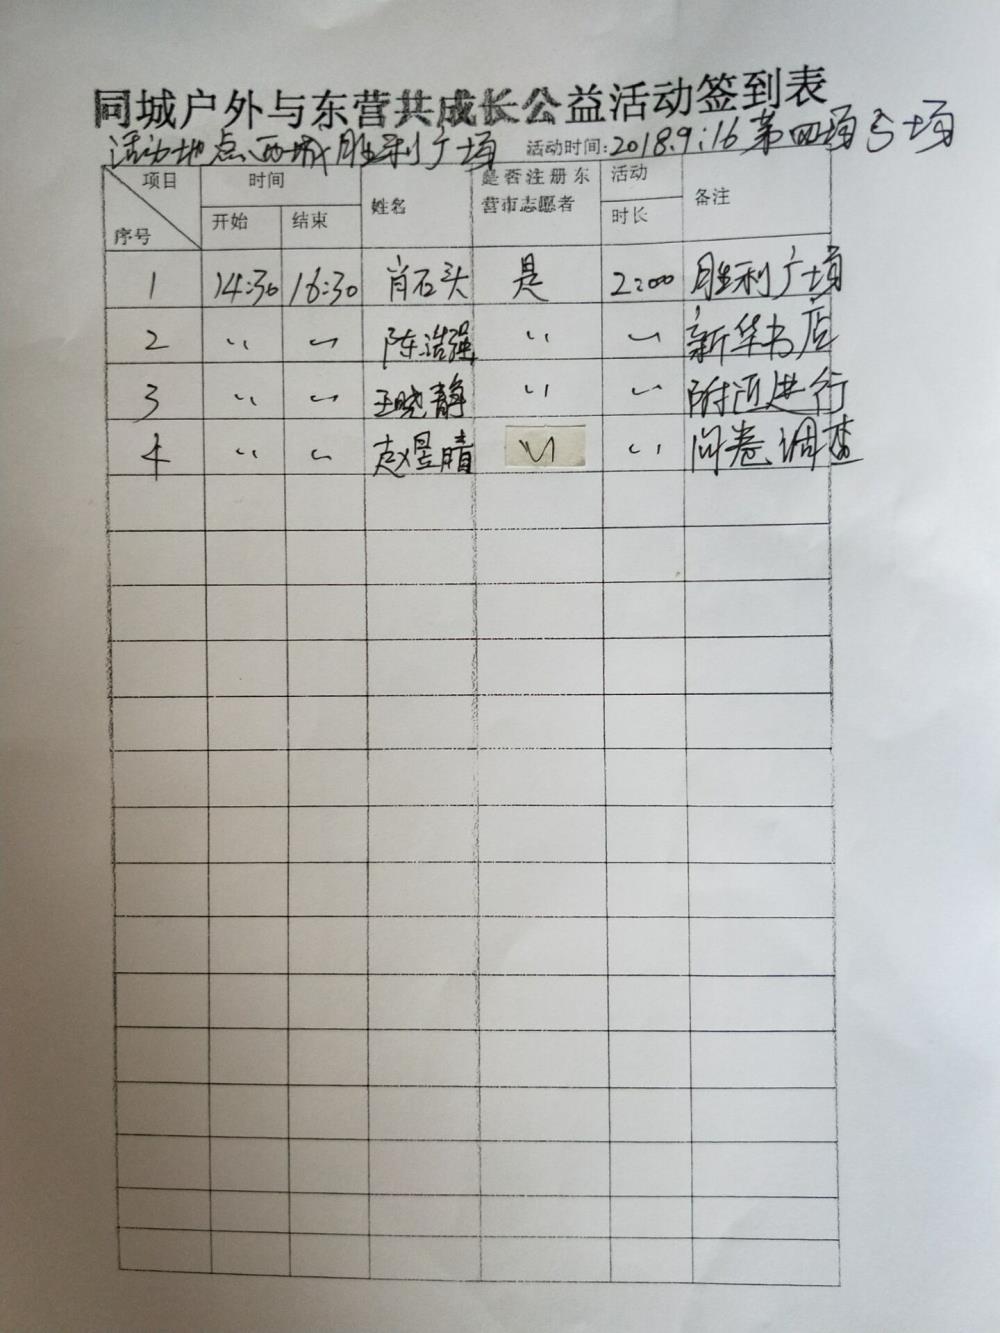 同城户外与东营共成长公益活动签到表
活动地点:西城胜利广场 活动时间:2018.9.16 第四场
项目 时间 姓名 是否注册东营市志愿者 活动时长 备注
序号 开始 结束
1 14:30 16:30 肖石头 是 2:00 胜利广场
2 〃 〃 陈浩强 〃 〃 新华书店
3 〃 〃 王晓静 〃 〃 附近进行
4 〃 〃 赵昱晴 〃 〃 问卷调查